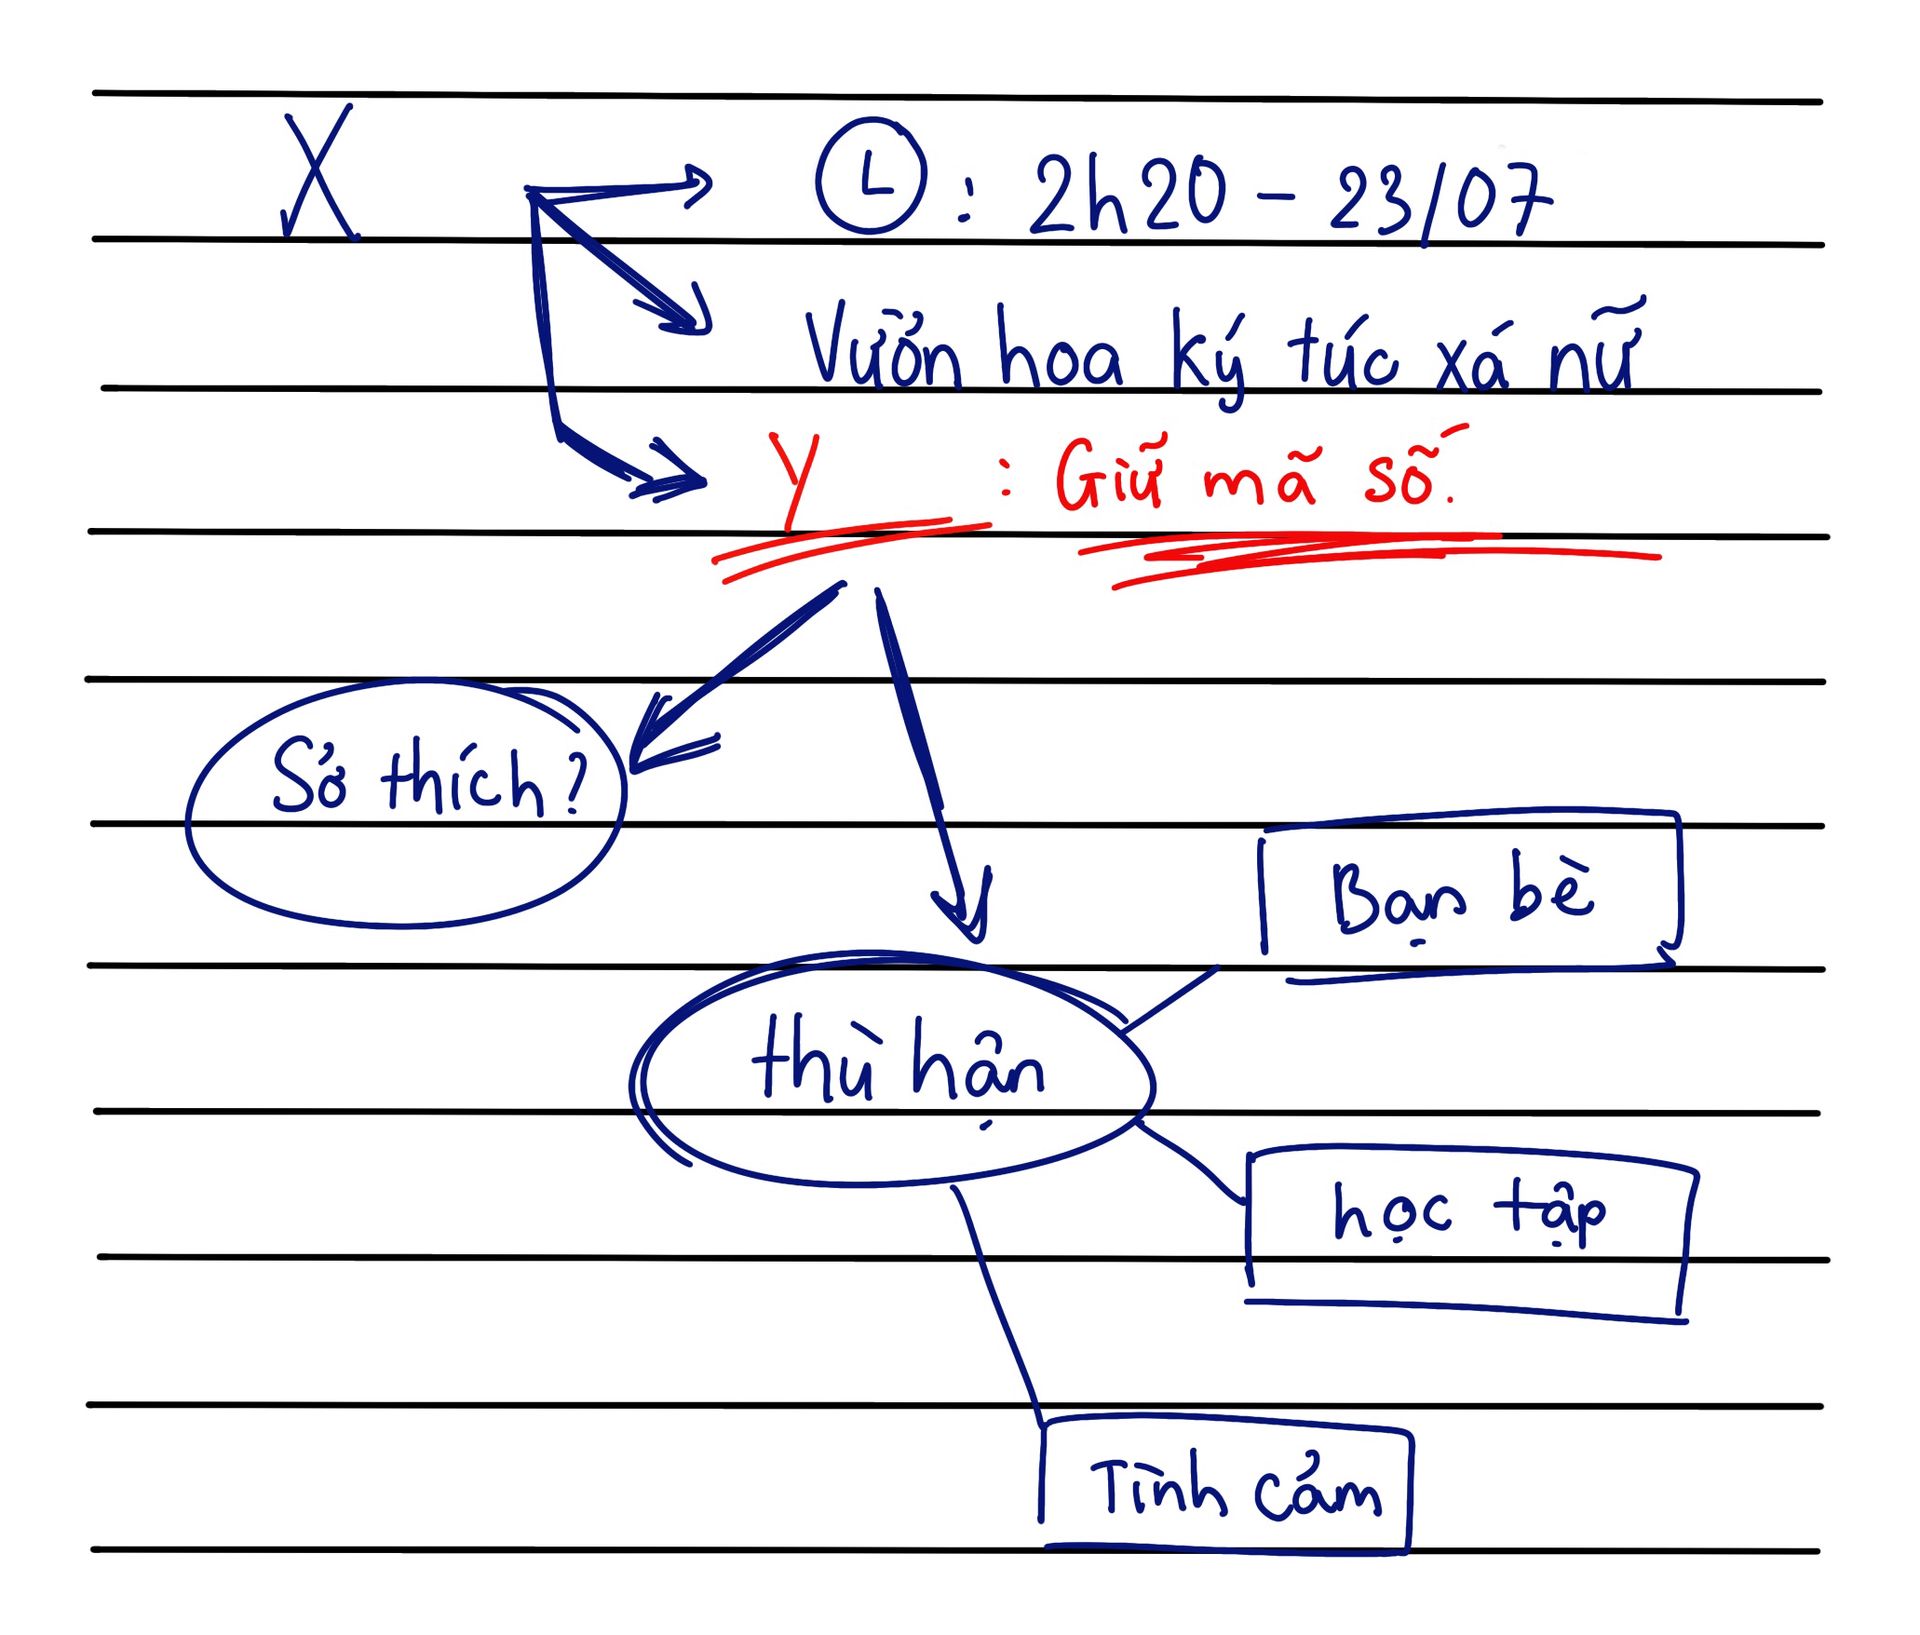 X
L : 2h20 - 23/07
Vườn hoa ký túc xá nữ
Y : Giữ mã số.
Sở thích?
Bạn bè
thù hận
học tập
Tình cảm